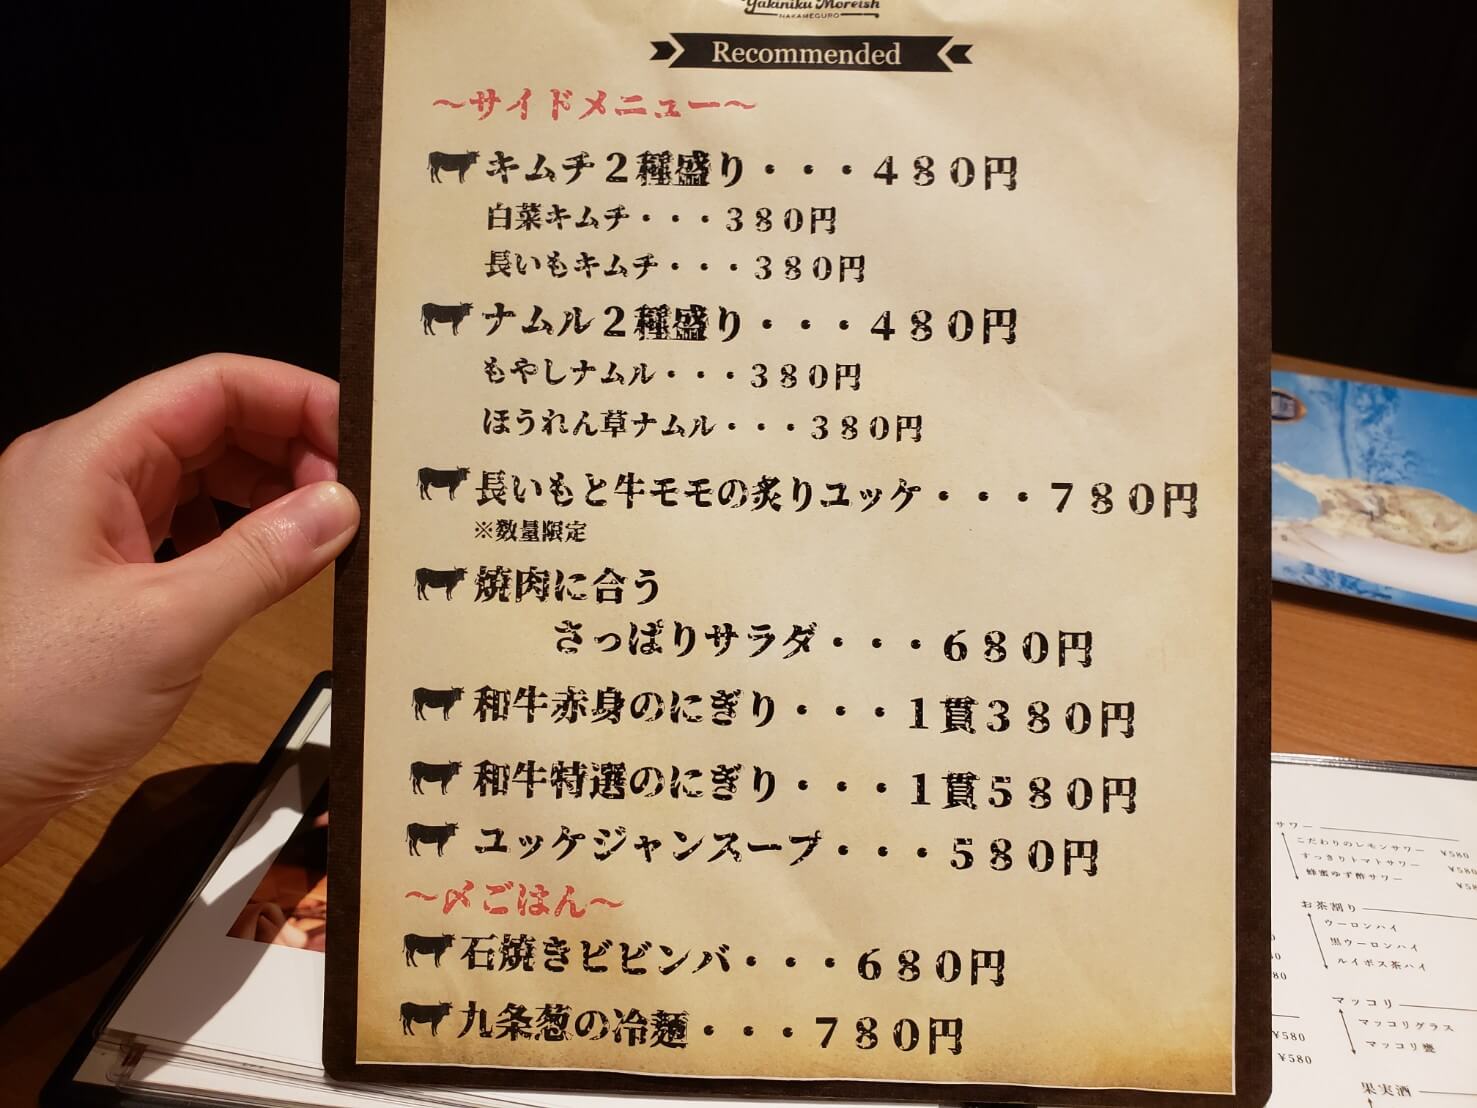 Yakiniku Moreish
NAKAMEGURO
Recommended
～サイドメニュー～
キムチ２種盛り・・・４８０円
白菜キムチ・・・３８０円
長いもキムチ・・・３８０円
ナムル２種盛り・・・４８０円
もやしナムル・・・３８０円
ほうれん草ナムル・・・３８０円
長いもと牛モモの炙りユッケ・・・７８０円
※数量限定
焼肉に合う
さっぱりサラダ・・・６８０円
和牛赤身のにぎり・・・１貫３８０円
和牛特選のにぎり・・・１貫５８０円
ユッケジャンスープ・・・５８０円
～〆ごはん～
石焼きビビンバ・・・６８０円
九条葱の冷麺・・・７８０円
サワー
こだわりのレモンサワー ¥580
すっきりトマトサワー ¥580
蜂蜜ゆず酢サワー
お茶割り
ウーロンハイ
黒ウーロンハイ
ルイボス茶ハイ
マッコリ
マッコリグラス
マッコリ甕
¥580
¥580
果実酒